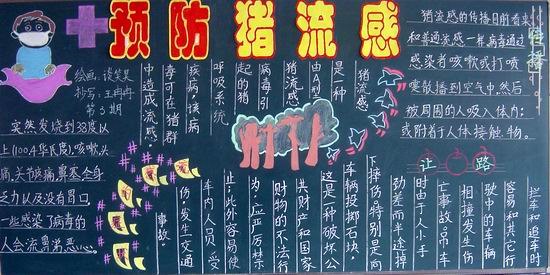 预防猪流感
绘画：谈笑昊
抄写：王冉冉
第3期
突然发烧到38度以
上(100.4华氏度)、咳嗽、头
痛、关节疼痛、鼻塞、全身
乏力以及没有胃口，
一些感染了病毒的
人会流鼻涕、恶
猪流感
是一种
由A型
猪流感
病毒引
起的猪
呼吸系统
疾病，该病
毒可在猪群
中造成流感。
猪流感的传播目前看来
和普通流感一样，病毒通过
感染者咳嗽或打喷
嚏散播到空气中，然后
被周围的人吸入体内；
或附着于人体接触物。
传播
让路
拦车和追车时
容易和其它行
驶中的车辆
相撞发生伤
亡事故。吊车
时由于人手
劲差而半途掉
下摔伤。特别是向
车辆投掷石块，
这是一种破坏公
共财产和国家
财物的不法行
为，应严厉禁
止。此外容易使
车内人员受
伤，发生交通
事故